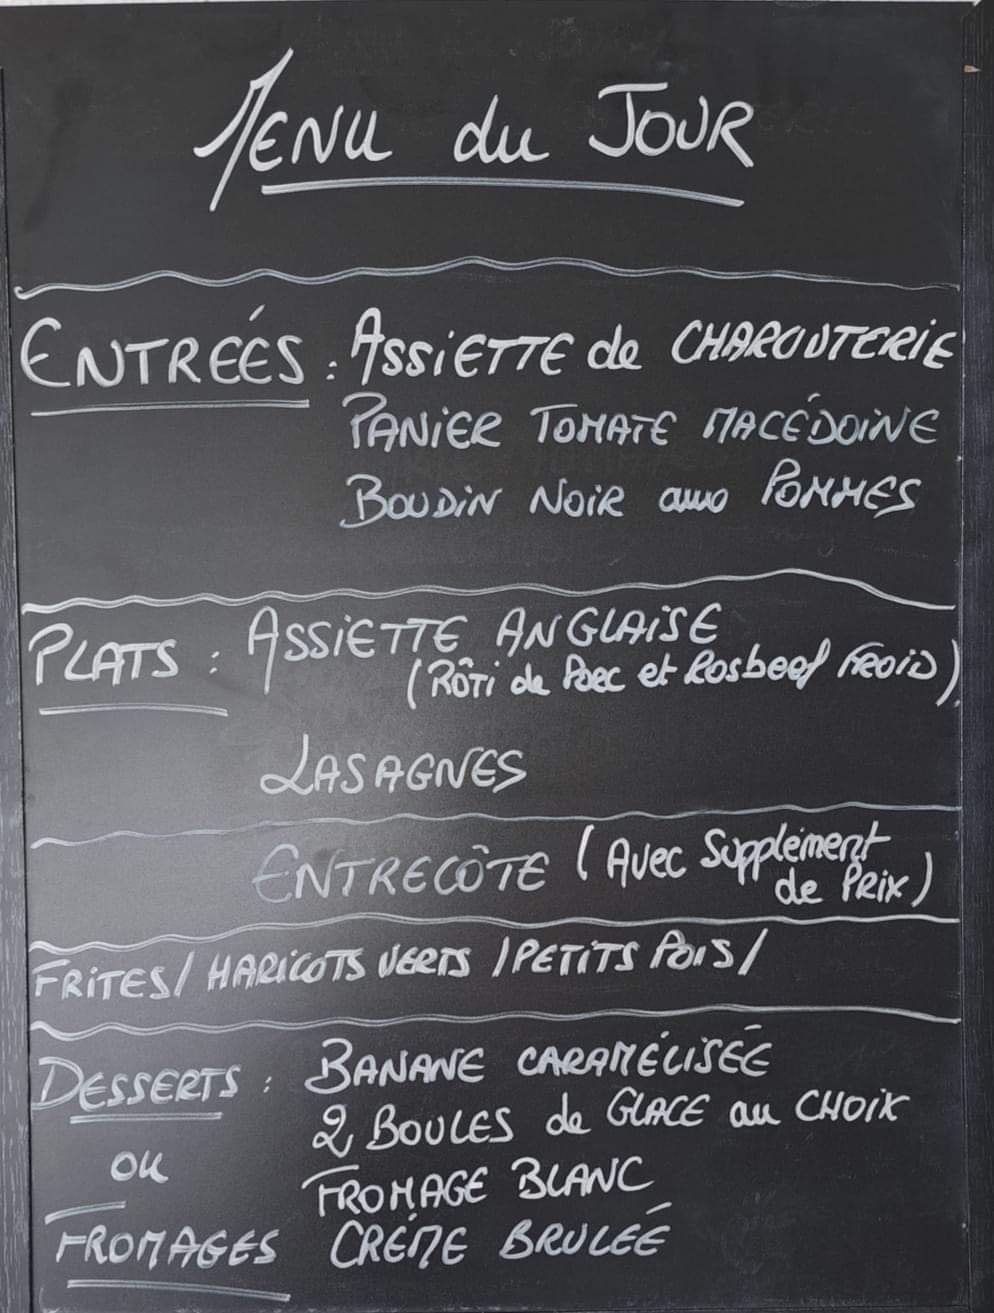 MENU du JOUR
ENTRÉES : ASSIETTE de CHARCUTERIE
PANIER TOMATE MACÉDOINE
BOUDIN NOIR aux POMMES
PLATS : ASSIETTE ANGLAISE
(RÔTI de Porc et Rosbeef FROID)
LASAGNES
ENTRECÔTE (Avec Supplément
de PRIX)
FRITES / HARICOTS VERTS / PETITS POIS /
DESSERTS : BANANE CARAMÉLISÉE
2 BOULES de GLACE au CHOIX
ou
FROMAGE BLANC
FROMAGES CRÉME BRULÉE